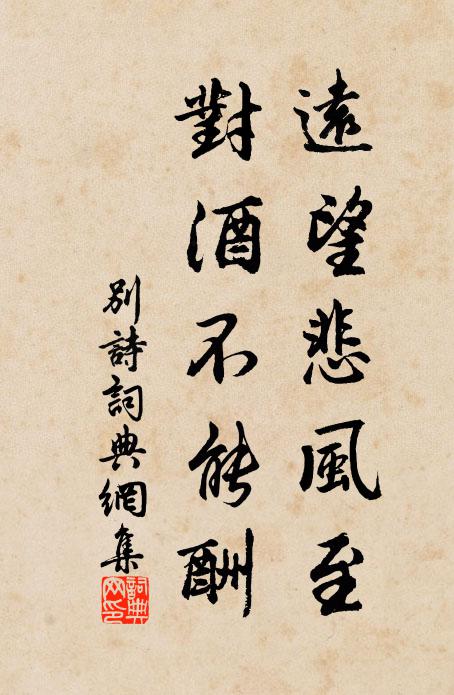 遠望悲風至
對酒不能酬
別詩詞典網集
詞典網印